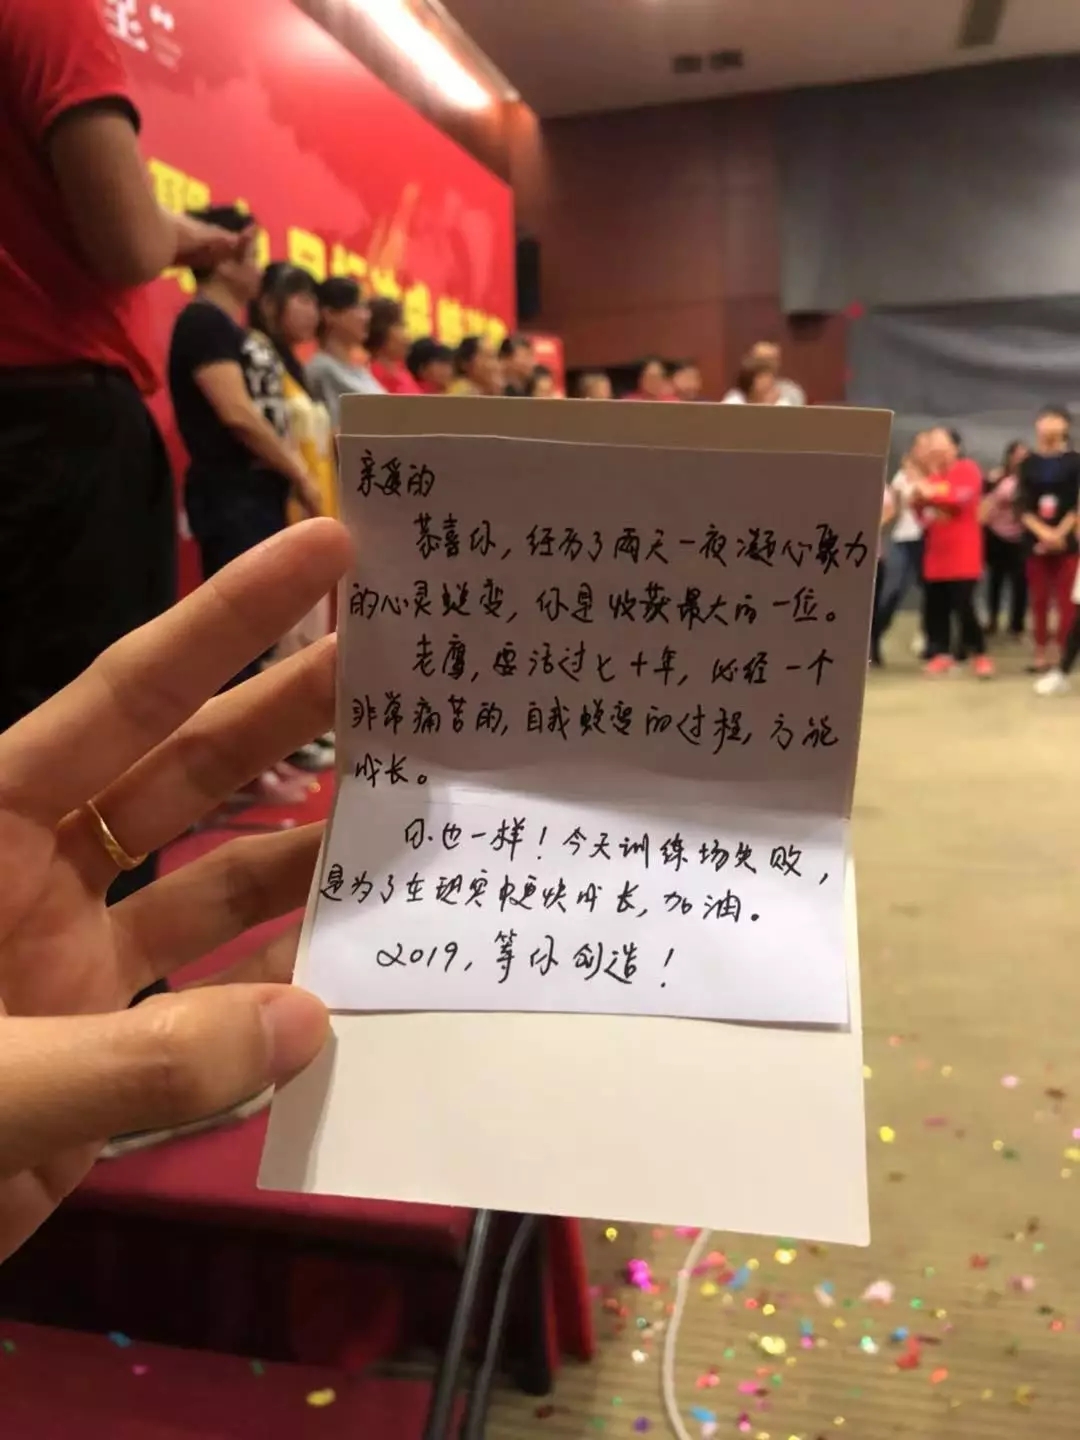 亲爱的
恭喜你，经历了两天一夜凝心聚力
的心灵蜕变，你是收获最大的一位。
老鹰，要活过七十年，必经一个
非常痛苦的，自我蜕变的过程，方能
成长。
你也一样！今天训练场失败，
是为了在现实中更快成长，加油。
2019，等你创造！